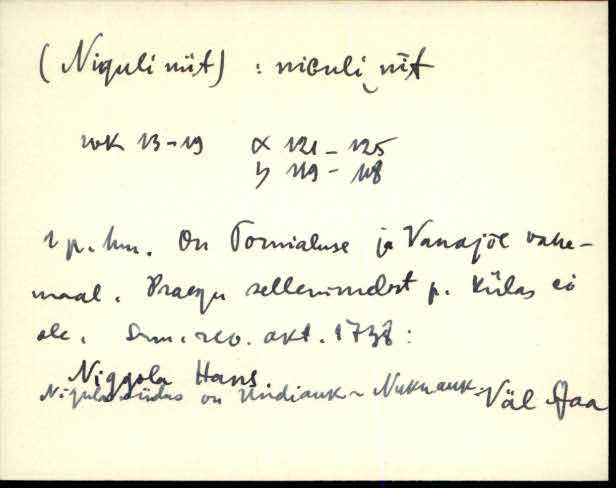 (Niguli niit) : niGuli niit
wk 13-19 α 121 - 125
b 119 - 118
1 p. hm. On Tornialuse ja Vanajõe vahe-
maal. Praegu sellenimelist p. külas ei
ole. rev. akt. 1738:
Niggola Hans.
Nigula on Undiauk ~ Nuknauk. Väl Jaa